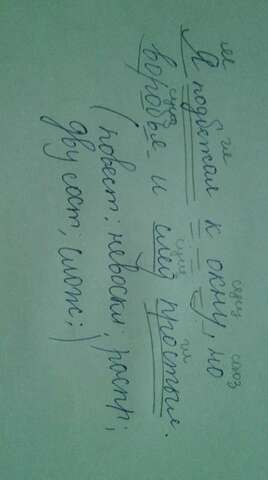 ме гл сущ союз
Я подбежал к окну, но
сущ сущ гл
воробья и след простыл.
(повест; невоскл; распр;
двусост; слож;)